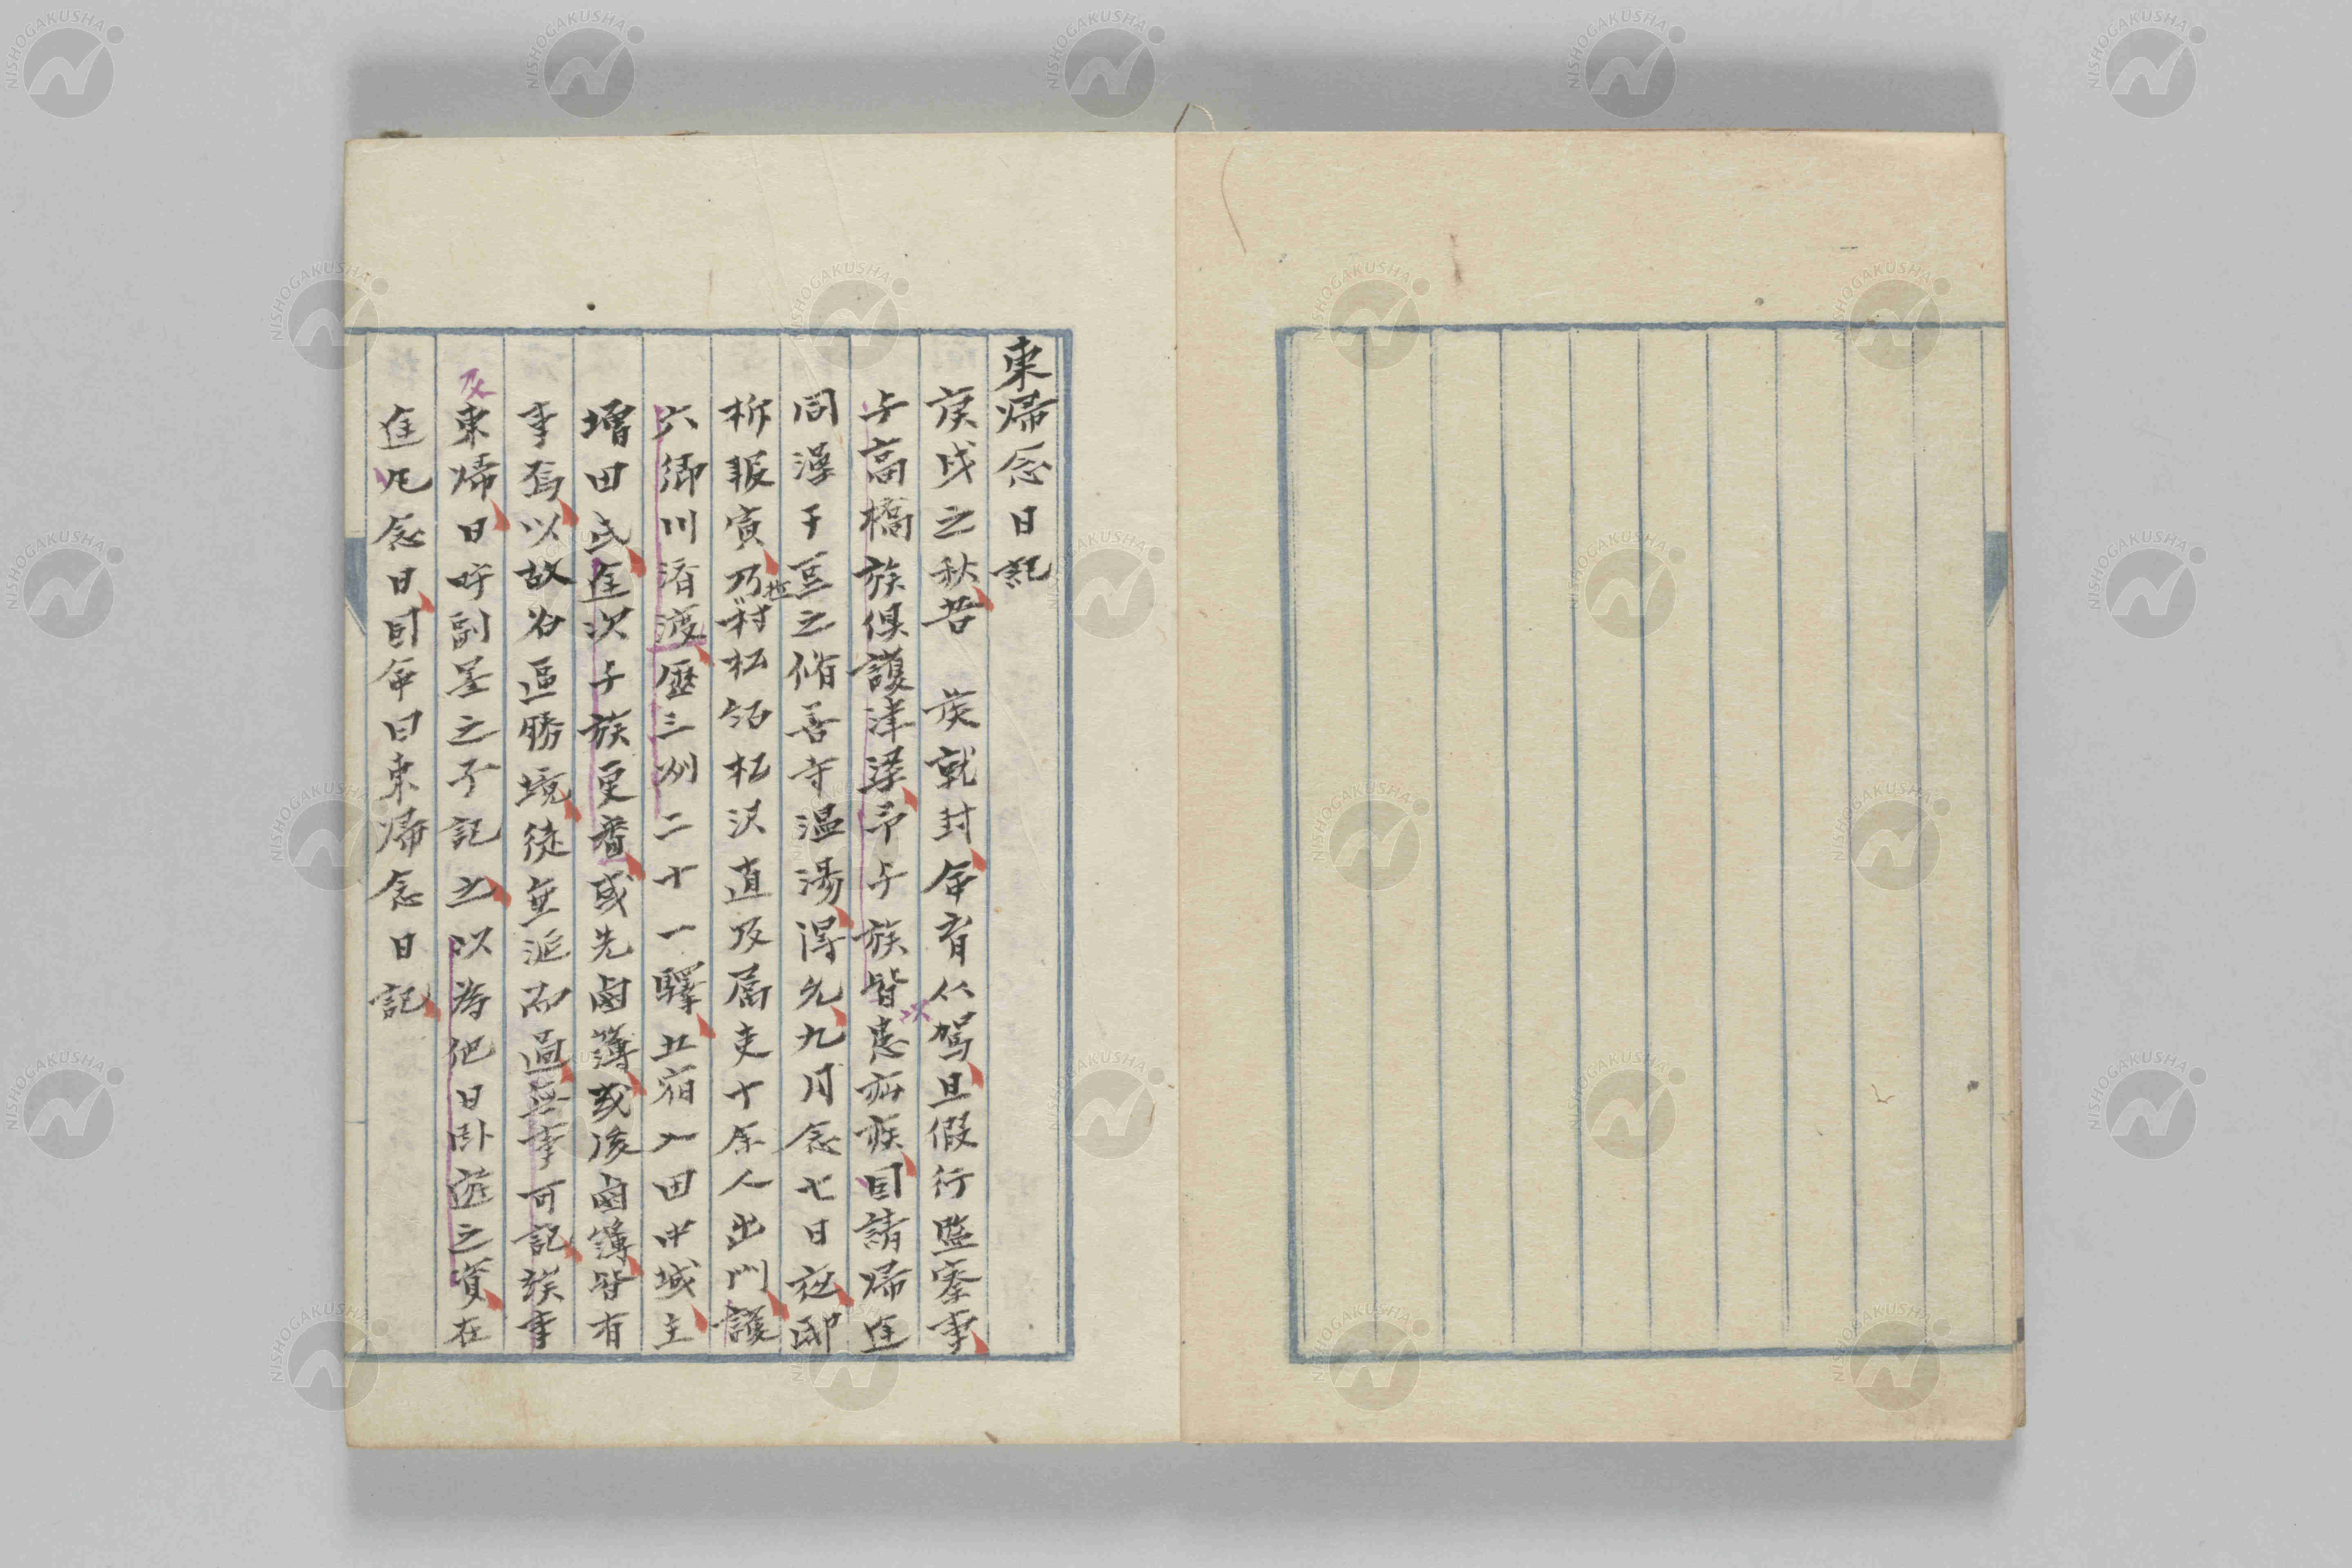 東帰念日記
庚戌之秋吾 侯就封命育従駕且假行監察事
与高橋族俱護津梁予与族皆患疝族因請帰途
同澡于豆之脩善寺温湯得允九月念七日夜邸
柝報寅乃村松紹松沢直及属吏十余人出門護
拉
六郷川済渡歴三州二十一驛五宿入田中城主
増田氏途次与族更番或先鹵簿或後鹵簿皆有
事焉以故名區勝境徒並逝而過無事可記族事
及
東帰日呼副墨之子記之以為他日臥遊之資在
途凡念日因命曰東帰念日記
NISHOGAKUSHA